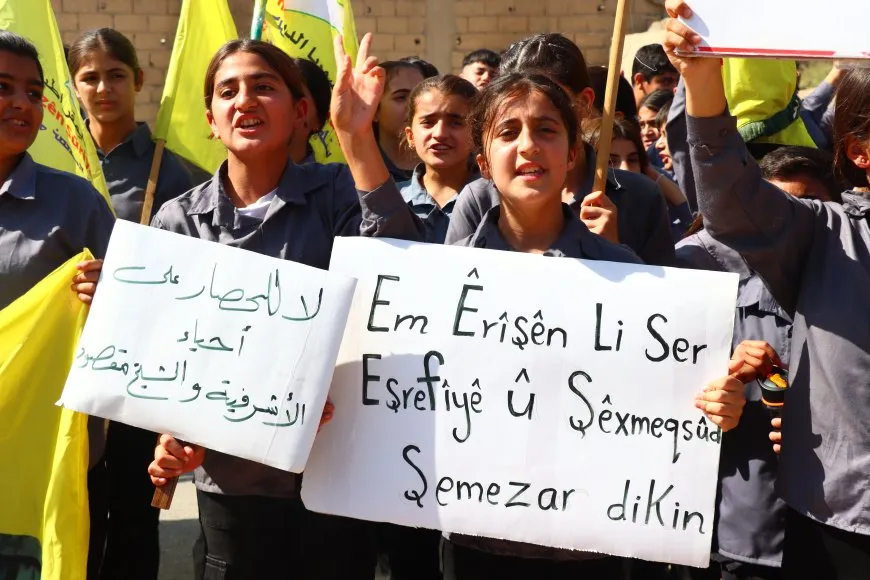 لا للحصار على
أحياء
الأشرفية والشيخ مقصود
Em Êrîşên Li Ser
Eşrefîyê û Şêxmeqsûd
Şemezar dikin